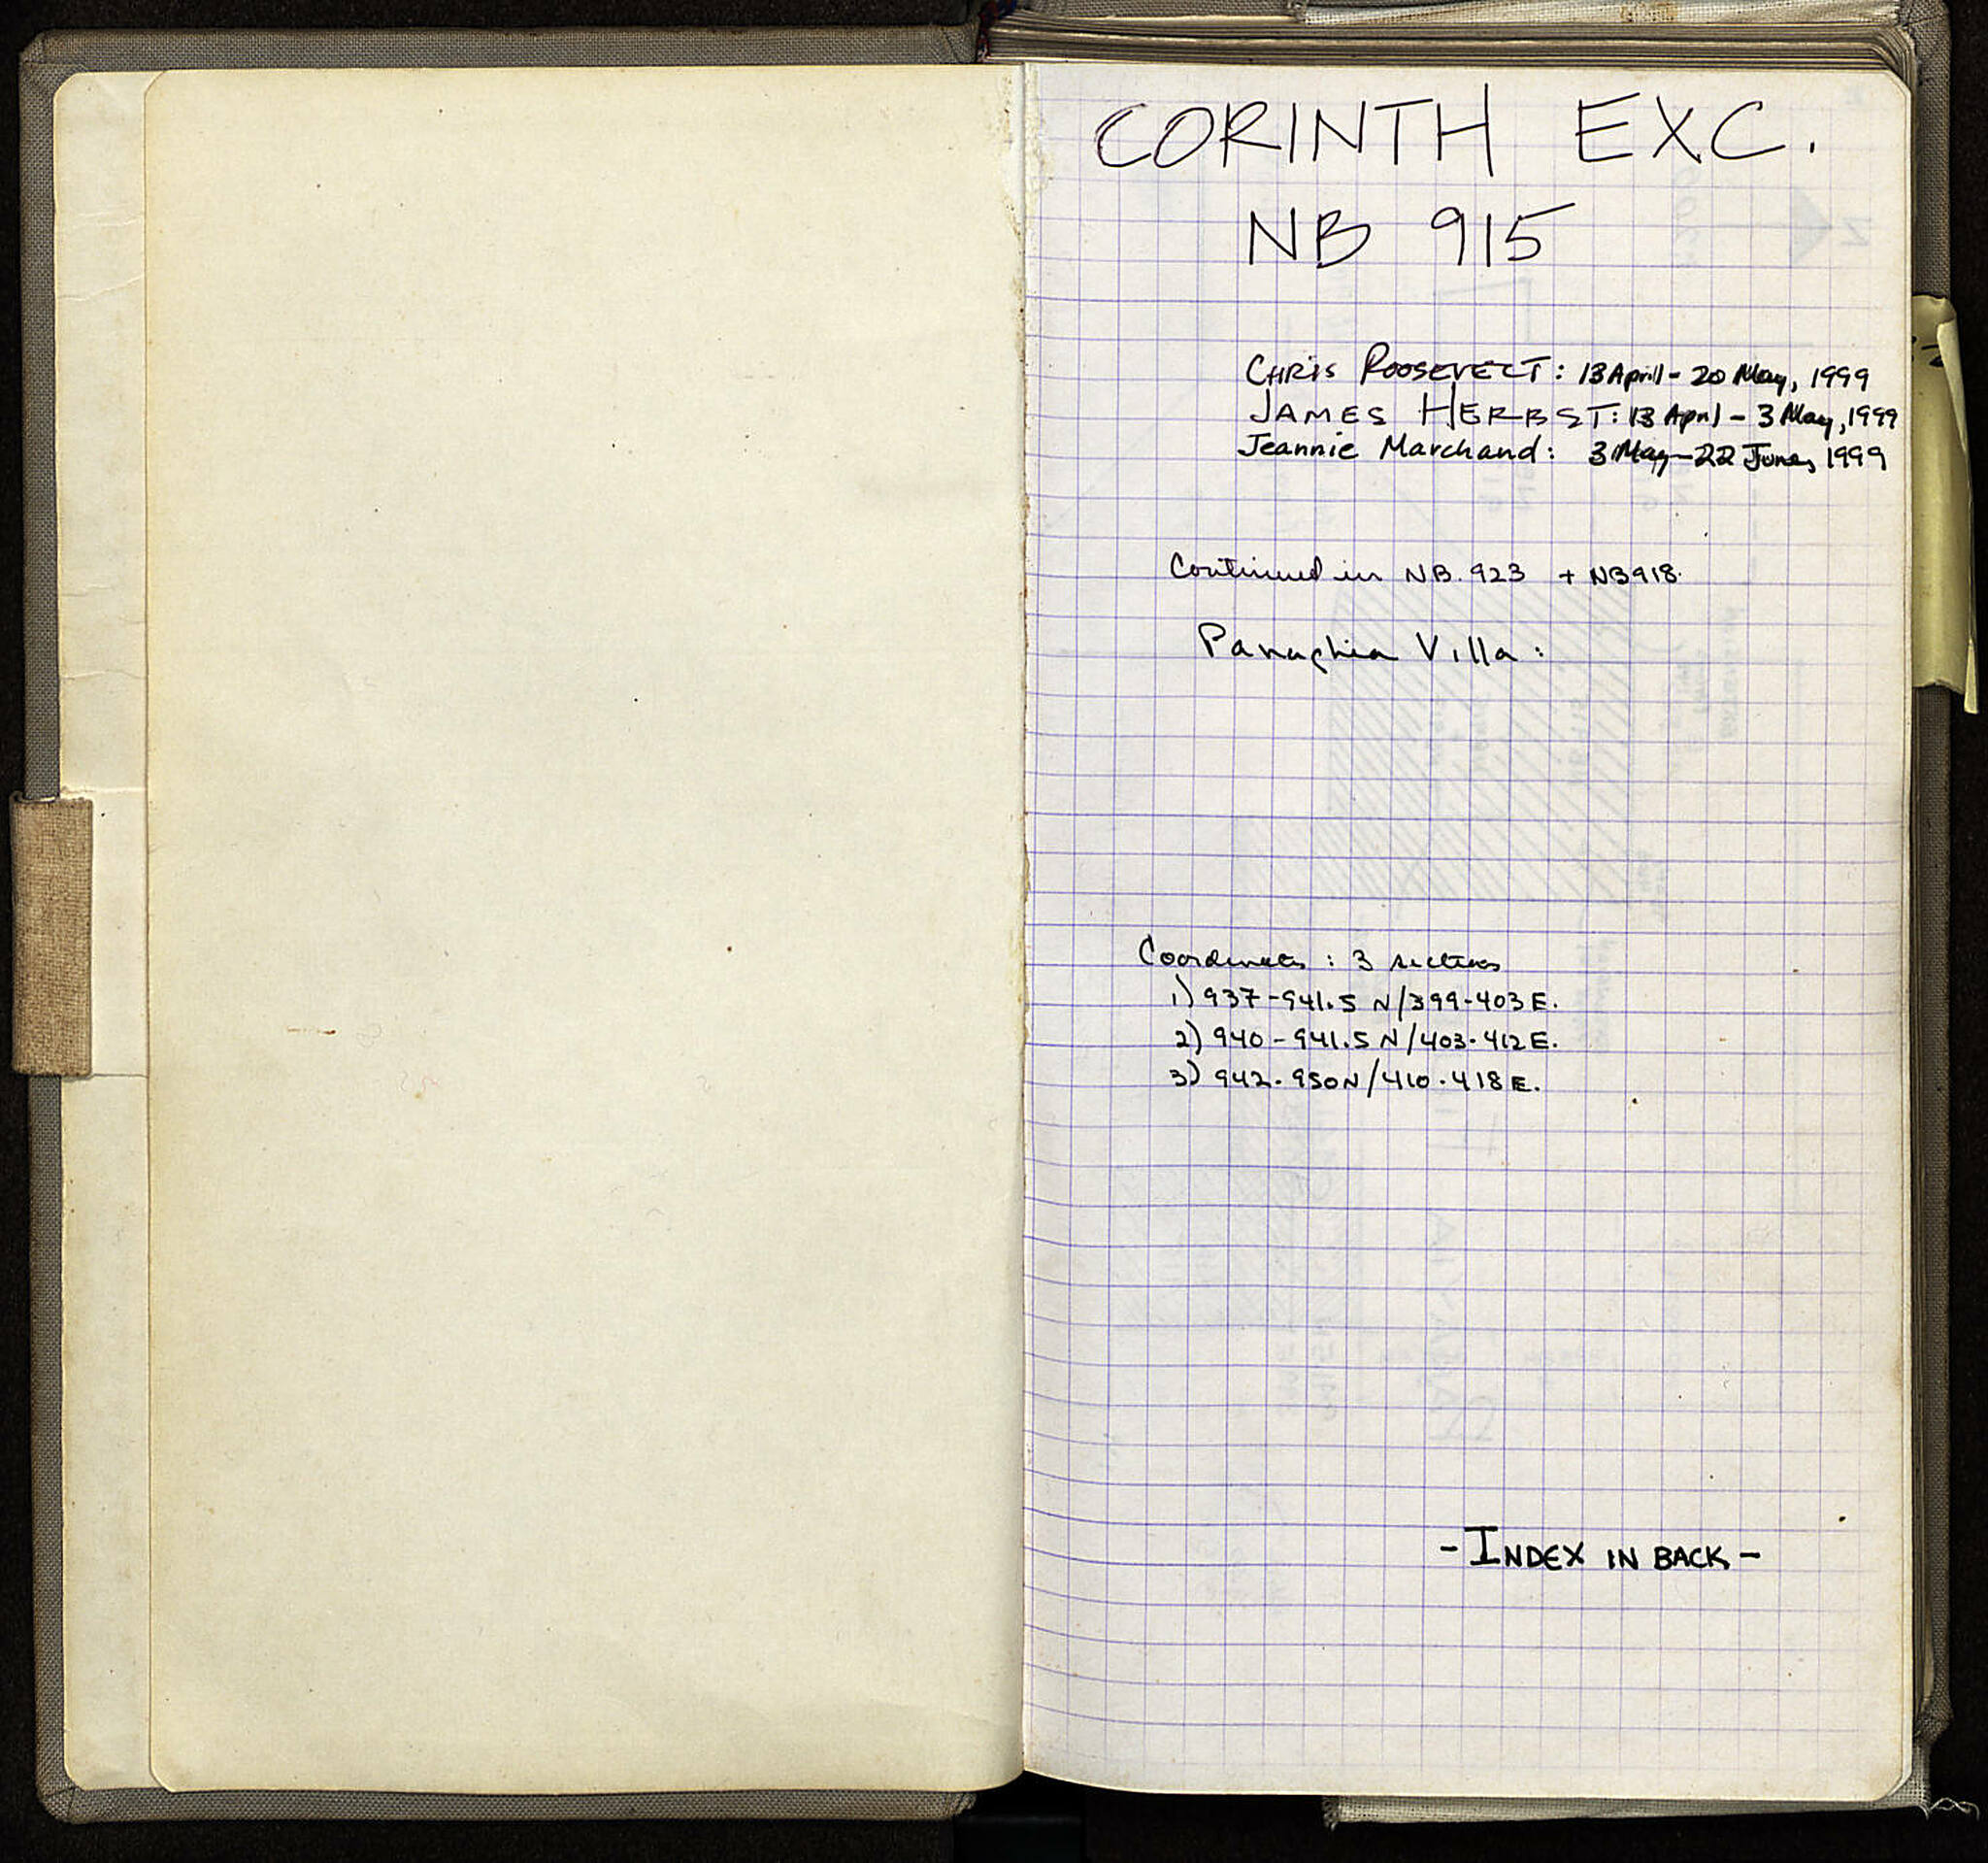 CORINTH EXC.
NB 915
CHRIS ROOSEVELT: 13 April - 20 May, 1999
JAMES HERBST: 13 April - 3 May, 1999
Jeannie Marchand: 3 May - 22 June, 1999
Continued in NB. 923 + NB918.
Panaghia Villa:
Coordinates: 3 sections
1) 937-941.5 N/399-403 E.
2) 940-941.5 N/403-412 E.
3) 942-950N/410-418 E.
- INDEX IN BACK -